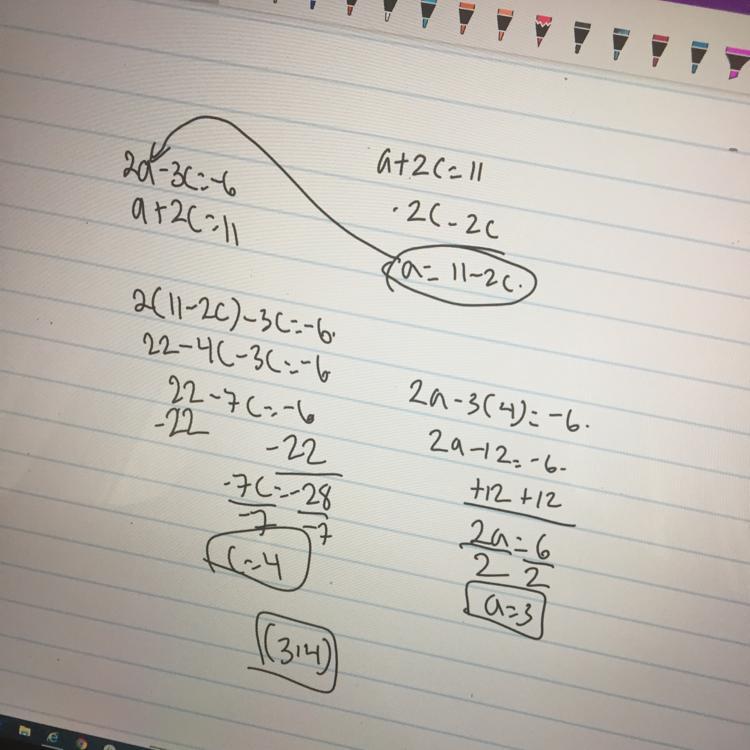 2a-3c=-6
a+2c=11
a+2c=11
-2c -2c
a= 11-2c.
2(11-2c)-3c=-6.
22-4c-3c=-6
22-7c=-6
-22 -22
-7c=-28
-7 -7
c=4
2a-3(4)=-6.
2a-12=-6.
+12 +12
2a=6
2 2
a=3
(3,4)